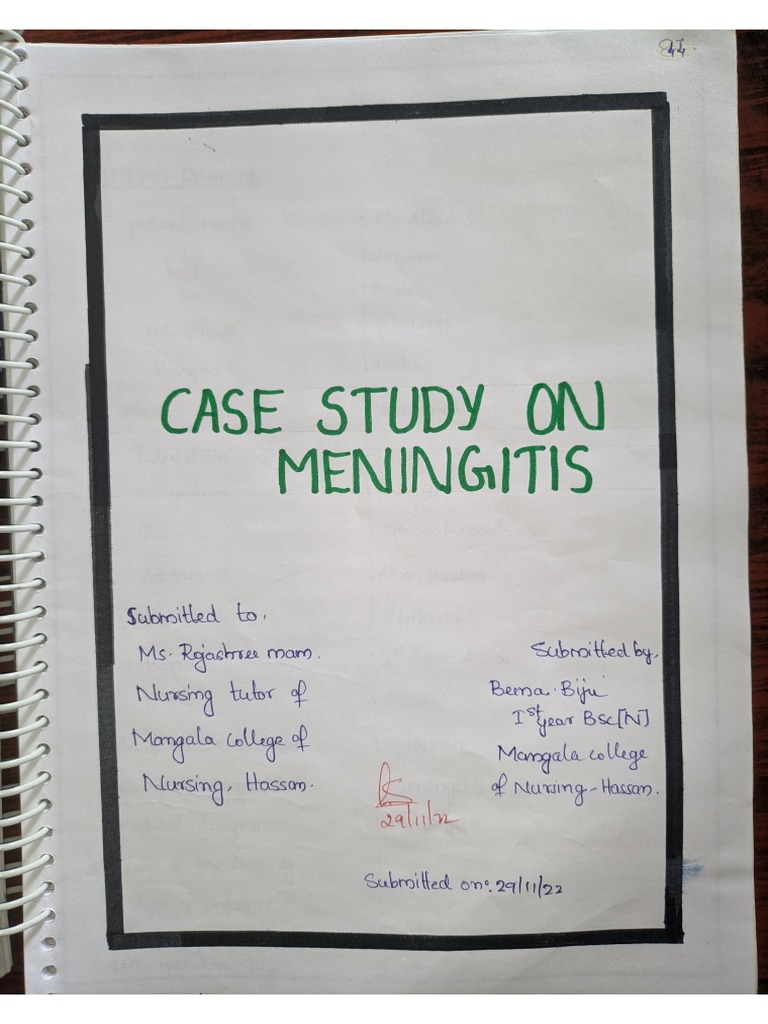 44.
CASE STUDY ON
MENINGITIS
Submitted to,
Ms. Rajashree mam.
Nursing tutor of
Mangala college of
Nursing, Hassan.
Submitted by,
Bema. Biju
Ist year Bsc[N]
Mangala college
of Nursing - Hassan.
29/11/22
Submitted on: 29/11/22